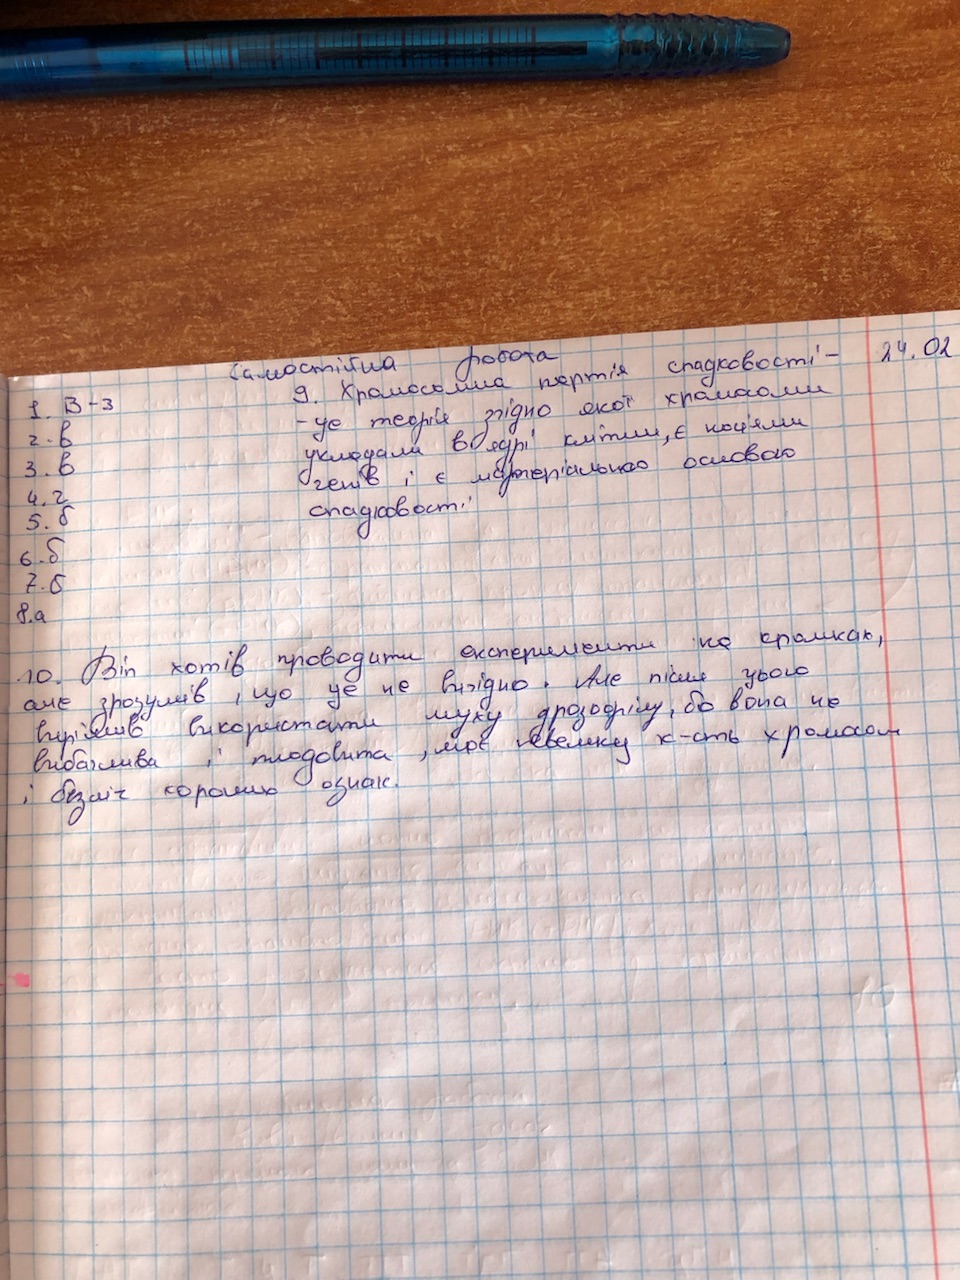 Самостійна робота
24.02
1. В-з
2. в
3. в
4. г
5. б
6. б
7. б
8. а
9. Хромосомна теорія спадковості -
- це теорія згідно якої хромосоми
укладали в ядрі клітин, є носіями
генів і є матеріальною основою
спадковості
10. Він хотів проводити експерименти на кроликах,
але зрозумів, що це не вигідно. Але після цього
вирішив використати муху дрозофілу, бо вона не
вибаглива і плодовита, має невелику к-сть хромосом
і безліч ознак.